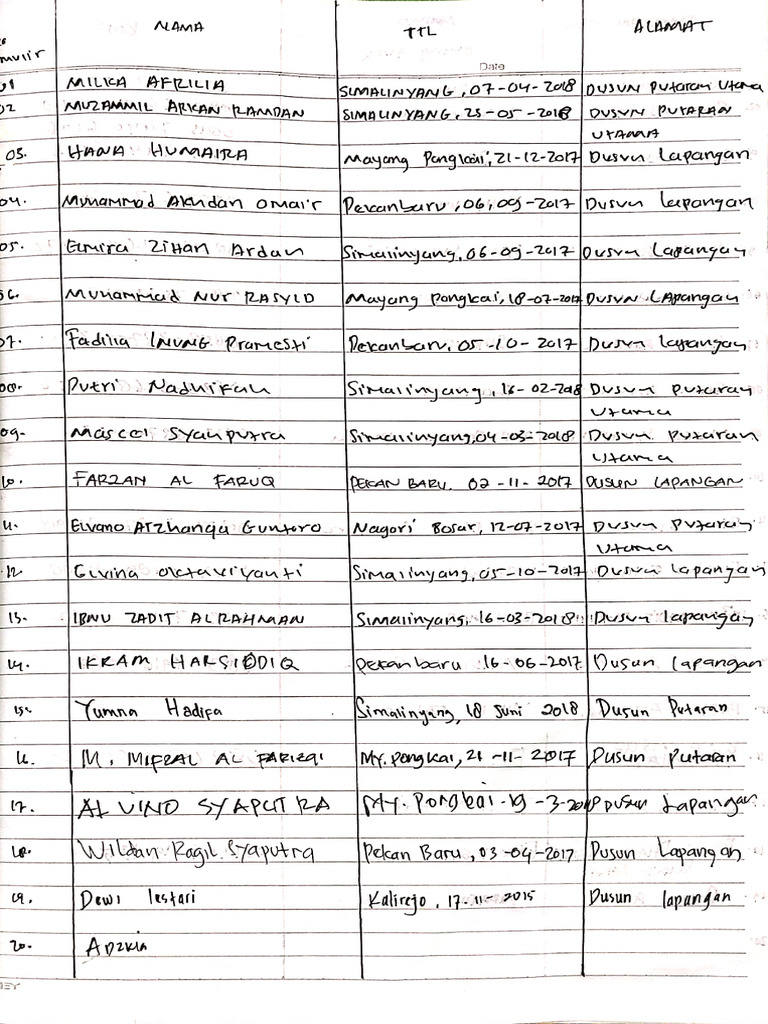 NAMA TTL ALAMAT
mulir
Date
01 MILKA AFRILIA SIMALINYANG, 07-04-2018 DUSUN PUtaran Utama
02 MUZAMMIL ARKAN RAMDAN SIMALINYANG, 25-05-2018 DUSUN PUTARAN
UTAMA
03. HANA HUMAIRA Mayang Pongkai, 21-12-2017 Dusun Lapangan
04. Muhammad Akhdan Omair Pekanbaru, 06, 09-2017 Dusun Lapangan
05. Elmira Zihan Ardan Simalinyang, 06-09-2017 Dusun Lapangan
06. Muhammad Nur RASYID Mayang Pongkai, 18-07-2017 DUSUN LAPangan
07. Fadilla INUNG Pramesti Pekanbaru, 05-10-2017 Dusun Lapangan
08. Putri Nadhifah Simalinyang, 16-02-2018 Dusun putaran
Utama
09. Mascel Syahputra Simalinyang, 04-03-2018 Dusun Putaran
Utama
10. FARZAN AL FARUQ PEKAN BARU. 02-11-2017 DUSUN LAPANGAN
11. Elvano Arzhanqa Guntoro Nagori Bosar, 12-07-2017 Dusun Putaran
Utama
12. Elvina Oktaviyanti Simalinyang, 05-10-2017 Dusun lapangan
13. IBNU ZADIT ALRAHMAN Simalinyang, 16-03-2018 Dusun lapangan
14. IKRAM HARSIDDIQ Pekanbaru 16-06-2017 Dusun Lapangan
15. Yumna Hadifa Simalinyang, 18 Juni 2018 Dusun Putaran
16. M. MIFZAL AL FARIZQI My. Pongkai, 21-11-2017 Dusun putaran
17. ALVINO SYAPUTRA My. Pongkai-19-3-2018 DUSUN Lapangan
18. Wildan Ragil Syaputra Pekan Baru, 03-04-2017 Dusun Lapangan
19. Dewi lestari Kalirejo, 17-11-2015 Dusun lapangan
20. ADZKIA